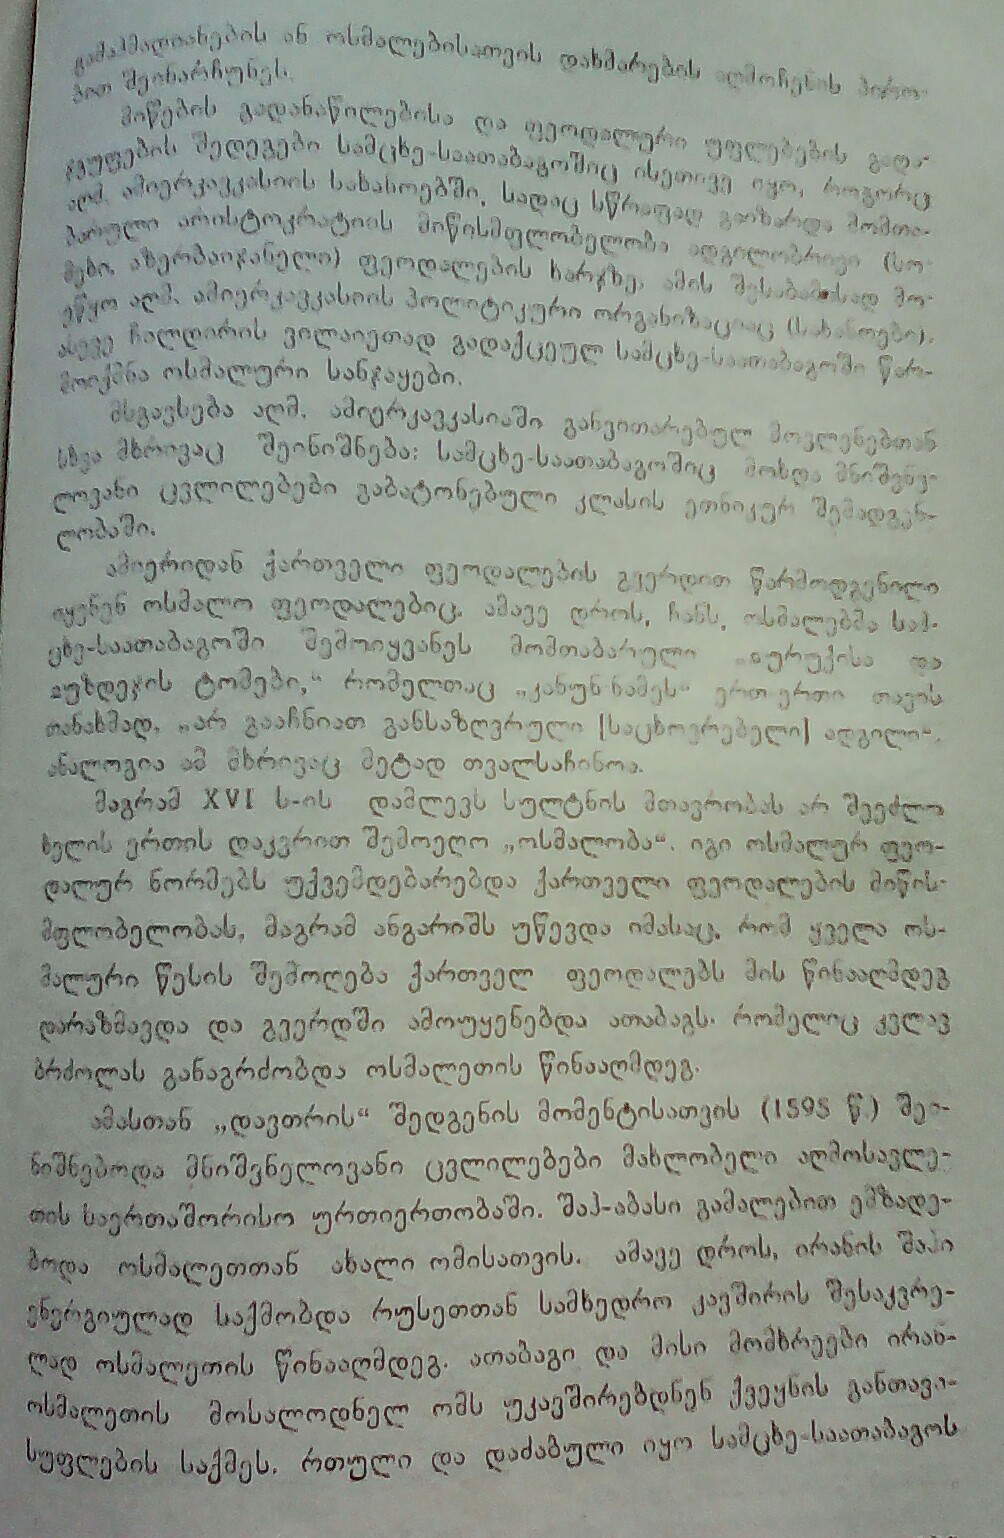 გამაჰმადიანების ან ოსმალებისათვის დახმარების აღმოჩენის პირო-
ბით შეინარჩუნეს.
მიწების გადანაწილებისა და ფეოდალური უფლებების გადა-
ჯგუფების შედეგები სამცხე-საათაბაგოშიც ისეთივე იყო, როგორც
აღმ. ამიერკავკასიის სახანოებში, სადაც სწრაფად გაიზარდა მომთა-
ბარული არისტოკრატიის მიწისმფლობელობა ადგილობრივი (სო-
მეხი, აზერბაიჯანელი) ფეოდალების ხარჯზე. ამის შესაბამისად მო-
ეწყო აღმ. ამიერკავკასიის პოლიტიკური ორგანიზაციაც (სახანოები).
ასევე ჩილდირის ვილაიეთად გადაქცეულ სამცხე-საათაბაგოში წარ-
მოიქმნა ოსმალური სანჯაყები.
მსგავსება აღმ. ამიერკავკასიაში განვითარებულ მოვლენებთან
სხვა მხრივაც შეინიშნება: სამცხე-საათაბაგოშიც მოხდა მნიშვნე-
ლოვანი ცვლილებები გაბატონებული კლასის ეთნიკურ შემადგენ-
ლობაში.
ამიერიდან ქართველი ფეოდალების გვერდით წარმოდგენილი
იყვნენ ოსმალო ფეოდალებიც. ამავე დროს, ჩანს, ოსმალებმა სამ-
ცხე-საათაბაგოში შემოიყვანეს მომთაბარული „იურუქისა და
ტომები,“ რომელთაც „კანუნ-ნამეს“ ერთ-ერთი თავის
თანახმად, „არ გააჩნიათ განსაზღვრული [საცხოვრებელი] ადგილი“.
ანალოგია ამ მხრივაც მეტად თვალსაჩინოა.
მაგრამ XVI ს-ის დამლევს სულტნის მთავრობას არ შეეძლო
ხელის ერთის დაკვრით შემოეღო „ოსმალობა“. იგი ოსმალურ ფეო-
დალურ ნორმებს უქვემდებარებდა ქართველი ფეოდალების მიწის-
მფლობელობას, მაგრამ ანგარიშს უწევდა იმასაც, რომ ყველა ოს-
მალური წესის შემოღება ქართველ ფეოდალებს მის წინააღმდეგ
დარაზმავდა და გვერდში ამოუყენებდა ათაბაგს. რომელიც კვლავ
ბრძოლას განაგრძობდა ოსმალეთის წინააღმდეგ.
ამასთან „დავთრის“ შედგენის მომენტისათვის (1595 წ.) შეი-
ნიშნებოდა მნიშვნელოვანი ცვლილებები მახლობელი აღმოსავლე-
თის საერთაშორისო ურთიერთობაში. შაჰ-აბასი გამალებით ემზადე-
ბოდა ოსმალეთთან ახალი ომისათვის. ამავე დროს, ირანის შაჰი
ენერგიულად საქმობდა რუსეთთან სამხედრო კავშირის შესაკვრე-
ლად ოსმალეთის წინააღმდეგ. ათაბაგი და მისი მომხრეები ირან-
ოსმალეთის მოსალოდნელ ომს უკავშირებდნენ ქვეყნის განთავი-
სუფლების საქმეს. რთული და დაძაბული იყო სამცხე-საათაბაგოს